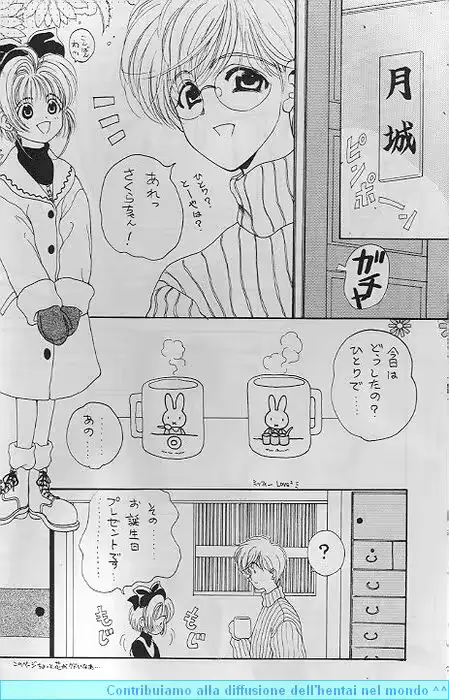 月城
ピンポーン
ガチャ
あれっ
さくらちゃん!
ひとり?
とーやは?
こんにちわっ
今日は
どうしたの?
ひとりで…
あの……
ミッフィー Love
?
その……
お誕生日
プレゼントです…
もじ
もじ
Contribuiamo alla diffusione dell'hentai nel mondo ^^